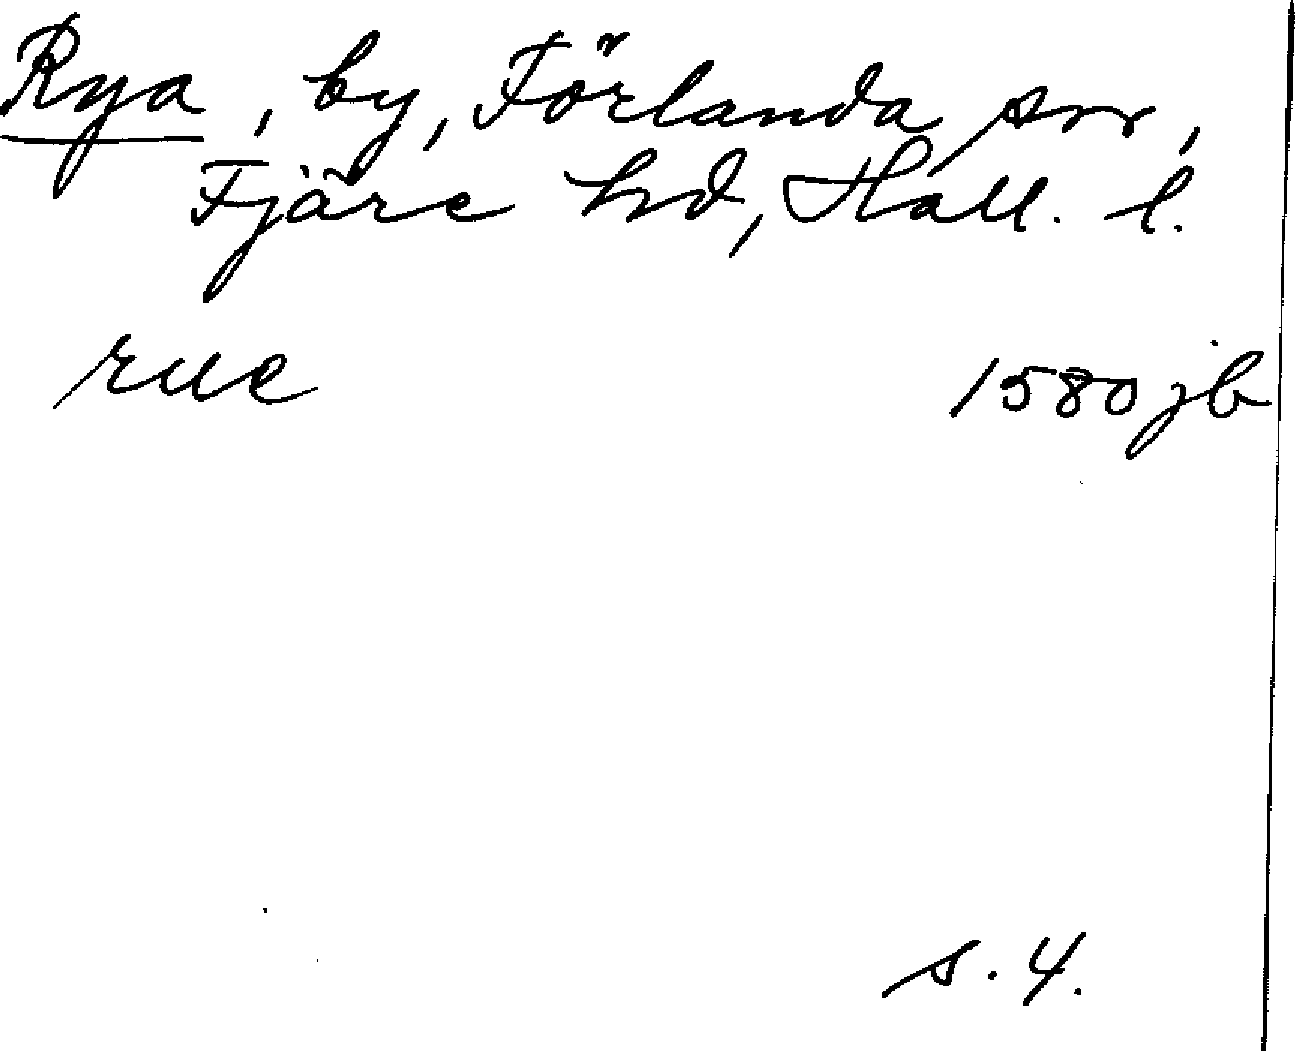 Rya, by, Förlanda sn,
Fjäre hd, Hall. l.
rue 1580 jb
s. 4.